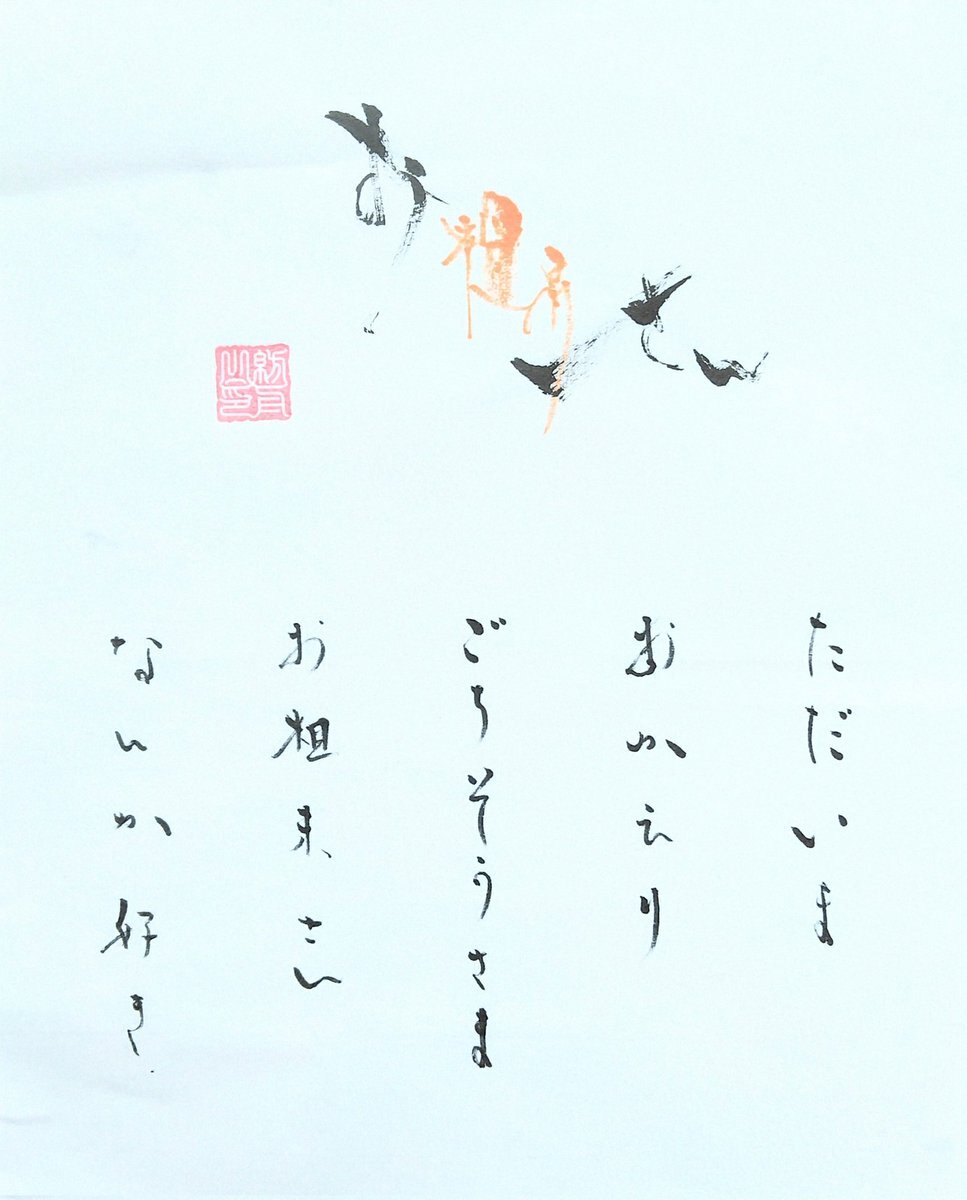 ただいま
おかえり
ごちそうさま
お粗末さん
なんか好き